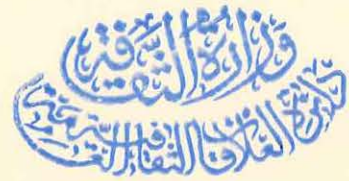 وزارة الثقافة
مديرية العلاقات الثقافية العامة